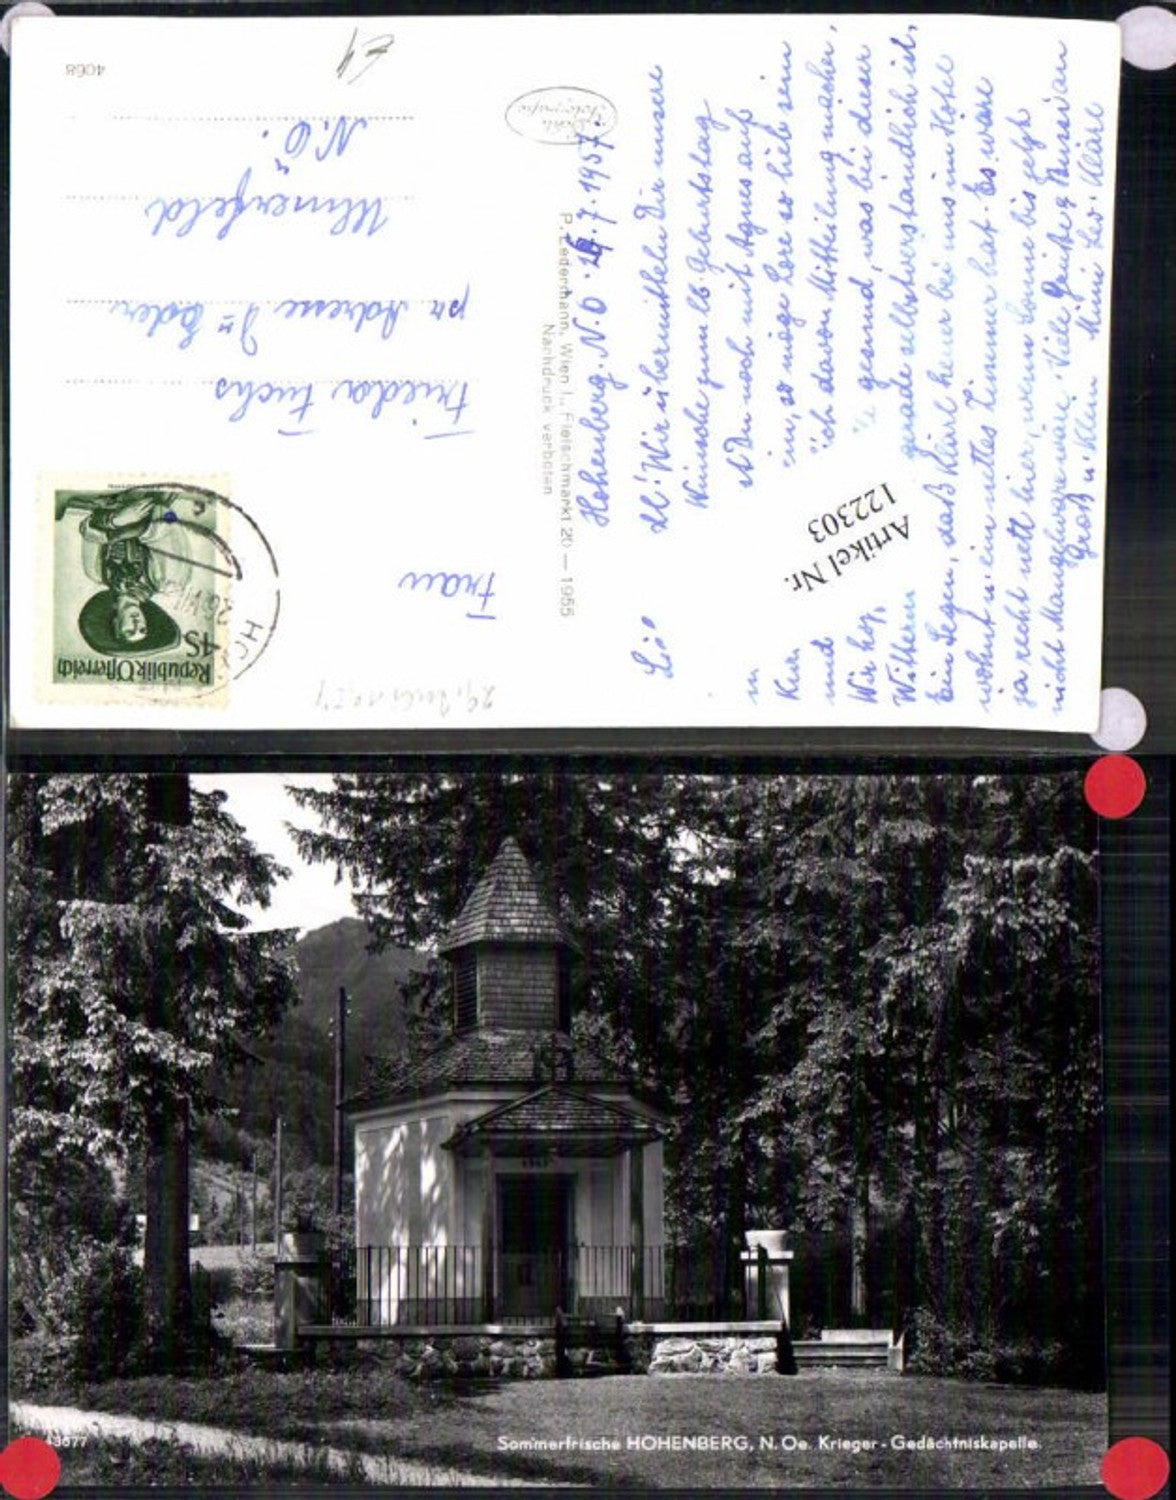 Hohenberg, N.Ö. 27.7.1957.
Wir übermitteln Dir unsere
Wünsche zum lb. Geburtstag
Du noch mit Agnes auf
in, so möge Lore so lieb sein
und ich davon Mitteilung machen,
Wir gesund, was bei dieser
gerade selbstverständlich ist.
Ein Segen, daß Klärl heuer bei uns im Hotel
wohnt u. ein nettes Zimmer hat. Es wäre
ja recht nett hier, wenn Sonne bis jetzt
nicht Mangelware wäre. Viele Grüße
Groß u. Klein Mimi Leo. Klärl
Artikel Nr.
122303
P. Ledermann, Wien I., Fleischmarkt 20 — 1955
Nachdruck verboten
Frau
Frieda Fuchs
pr Adresse Dr Edern
Ulmerfeld
N.Ö.
4068
Republik Österreich
1S
Sommerfrische HOHENBERG, N. Oe. Krieger-Gedächtniskapelle.